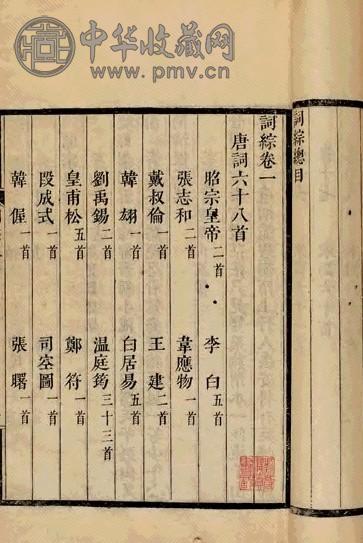 中华收藏网
www.pmv.cn
詞綜總目
詞綜卷一
唐詞六十八首
昭宗皇帝二首 李白五首
張志和二首 韋應物一首
戴叔倫一首 王建二首
韓翃一首 白居易五首
劉禹錫二首 温庭筠三十三首
皇甫松五首 鄭符一首
段成式一首 司空圖一首
韓偓一首 張曙一首